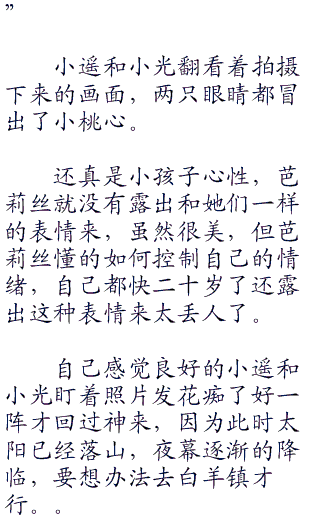 ”
小遥和小光翻看着拍摄
下来的画面，两只眼睛都冒
出了小桃心。
还真是小孩子心性，芭
莉丝就没有露出和她们一样
的表情来，虽然很美，但芭
莉丝懂的如何控制自己的情
绪，自己都快二十岁了还露
出这种表情来太丢人了。
自己感觉良好的小遥和
小光盯着照片发花痴了好一
阵才回过神来，因为此时太
阳已经落山，夜幕逐渐的降
临，要想办法去白羊镇才
行。。